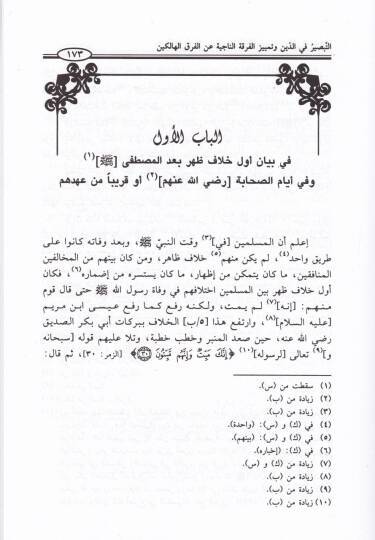 التبصير في الدين وتمييز الفرقة الناجية عن الفرق الهالكين
١٧٣
الباب الأول
في بيان أول خلاف ظهر بعد المصطفى [ﷺ](١)
وفي أيام الصحابة [رضي الله عنهم](٢) أو قريباً من عهدهم
إعلم أن المسلمين [في](٣) وقت النبيّ ﷺ، وبعد وفاته كانوا على
طريق واحد(٤)، لم يكن منهم(٥) خلاف ظاهر، ومن كان بينهم من المخالفين
المنافقين، ما كان يتمكن من إظهار، ما كان يستسره من إضماره(٦)، فكان
أول خلاف ظهر بين المسلمين اختلافهم في وفاة رسول الله ﷺ حتى قال قوم
منهم: [إنه](٧) لم يمت، ولكنه رفع كما رفع عيسى ابن مريم
[عليه السلام](٨)، وارتفع هذا [٥/ب] الخلاف ببركات أبي بكر الصديق
رضي الله عنه، حين صعد المنبر وخطب خطبة، وتلا عليهم قوله [سبحانه
و](٩) تعالى [لرسوله](١٠) ﴿إِنَّكَ مَيِّتٌ وَإِنَّهُم مَّيِّتُونَ ۝٣٠﴾ [الزمر: ٣٠]، ثم قال:
(١) سقطت من (س).
(٢) زيادة من (ب).
(٣) زيادة من (ب).
(٤) في (ك) و (س): (واحدة).
(٥) في (ك) و (س): (بينهم).
(٦) في (ك): (إخباره).
(٧) زيادة من (ك) و (س).
(٨) زيادة من (ب).
(٩) زيادة من (ب).
(١٠) زيادة من (ب).